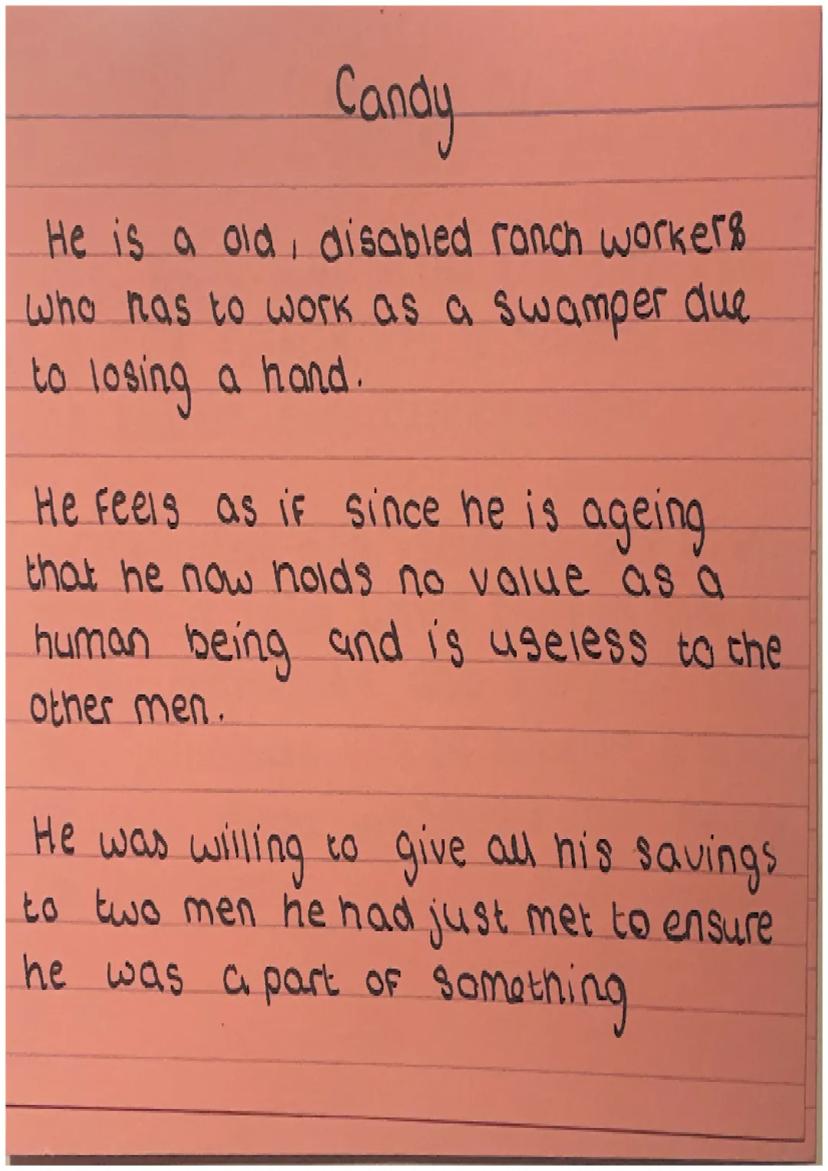 Candy
He is a old, disabled ranch workers
who has to work as a swamper due
to losing a hand.
He feels as if since he is ageing
that he now holds no value as a
human being and is useless to the
other men.
He was willing to give all his savings
to two men he had just met to ensure
he was a part of something